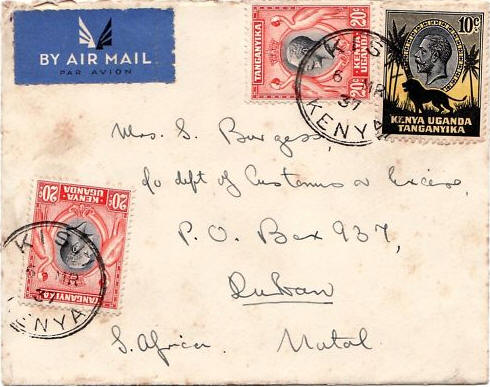 BY AIR MAIL
PAR AVION
TANGANYIKA
20c
20c
KENYA
UGANDA
10c
KENYA UGANDA
TANGANYIKA
6 MR
37
KENYA
Mrs. S. Burgess,
c/o dept of Customs & Excise,
P.O. Box 937,
Durban
S. Africa. Natal.
20c
20c
KENYA
UGANDA
TANGANYIKA
MR
37
KENYA